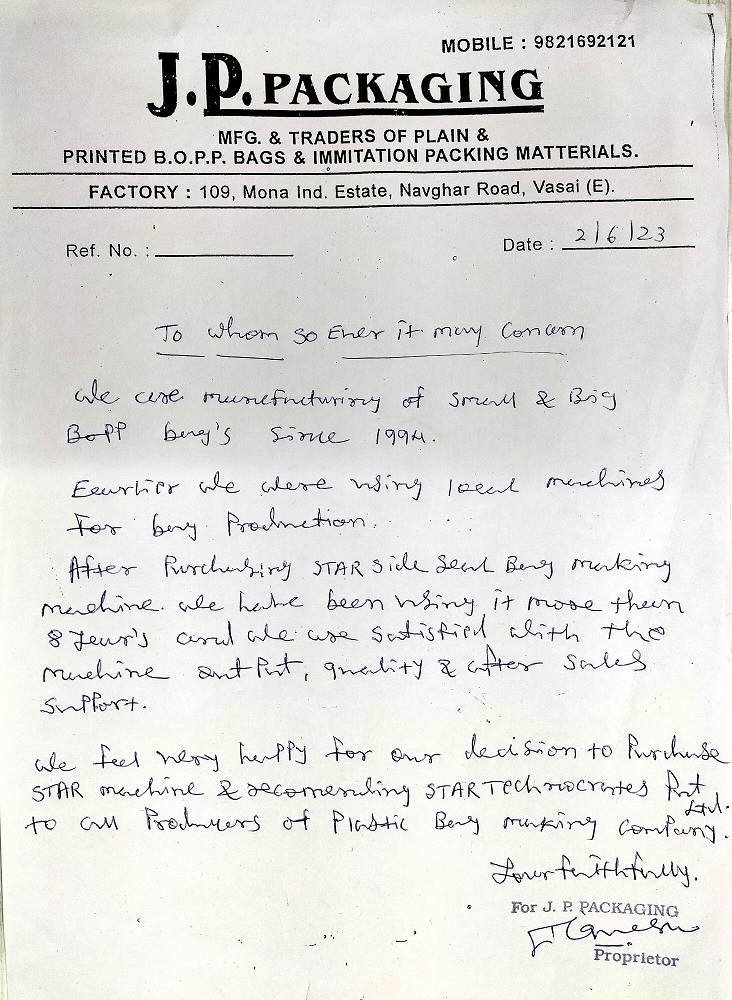 MOBILE : 9821692121
J.P. PACKAGING
MFG. & TRADERS OF PLAIN &
PRINTED B.O.P.P. BAGS & IMMITATION PACKING MATTERIALS.
FACTORY : 109, Mona Ind. Estate, Navghar Road, Vasai (E).
Ref. No. :
Date : 2/6/23
To whom so Ever it may Concern
We are manufacturing of Small & Big
BOPP bag's Since 1994.
Earlier we were using local machines
for bag Production.
After Purchasing STAR Side Seal Bag making
machine. we have been using it more than
8 Year's and we are satisfied with the
machine out Put, quality & after sales
Support.
We feel very happy for our decision to Purchase
STAR machine & recomending STAR Technocrates Pvt
Ltd.
to all Producers of Plastic Bag making Company.
Your faithfully.
For J. P. PACKAGING
Proprietor